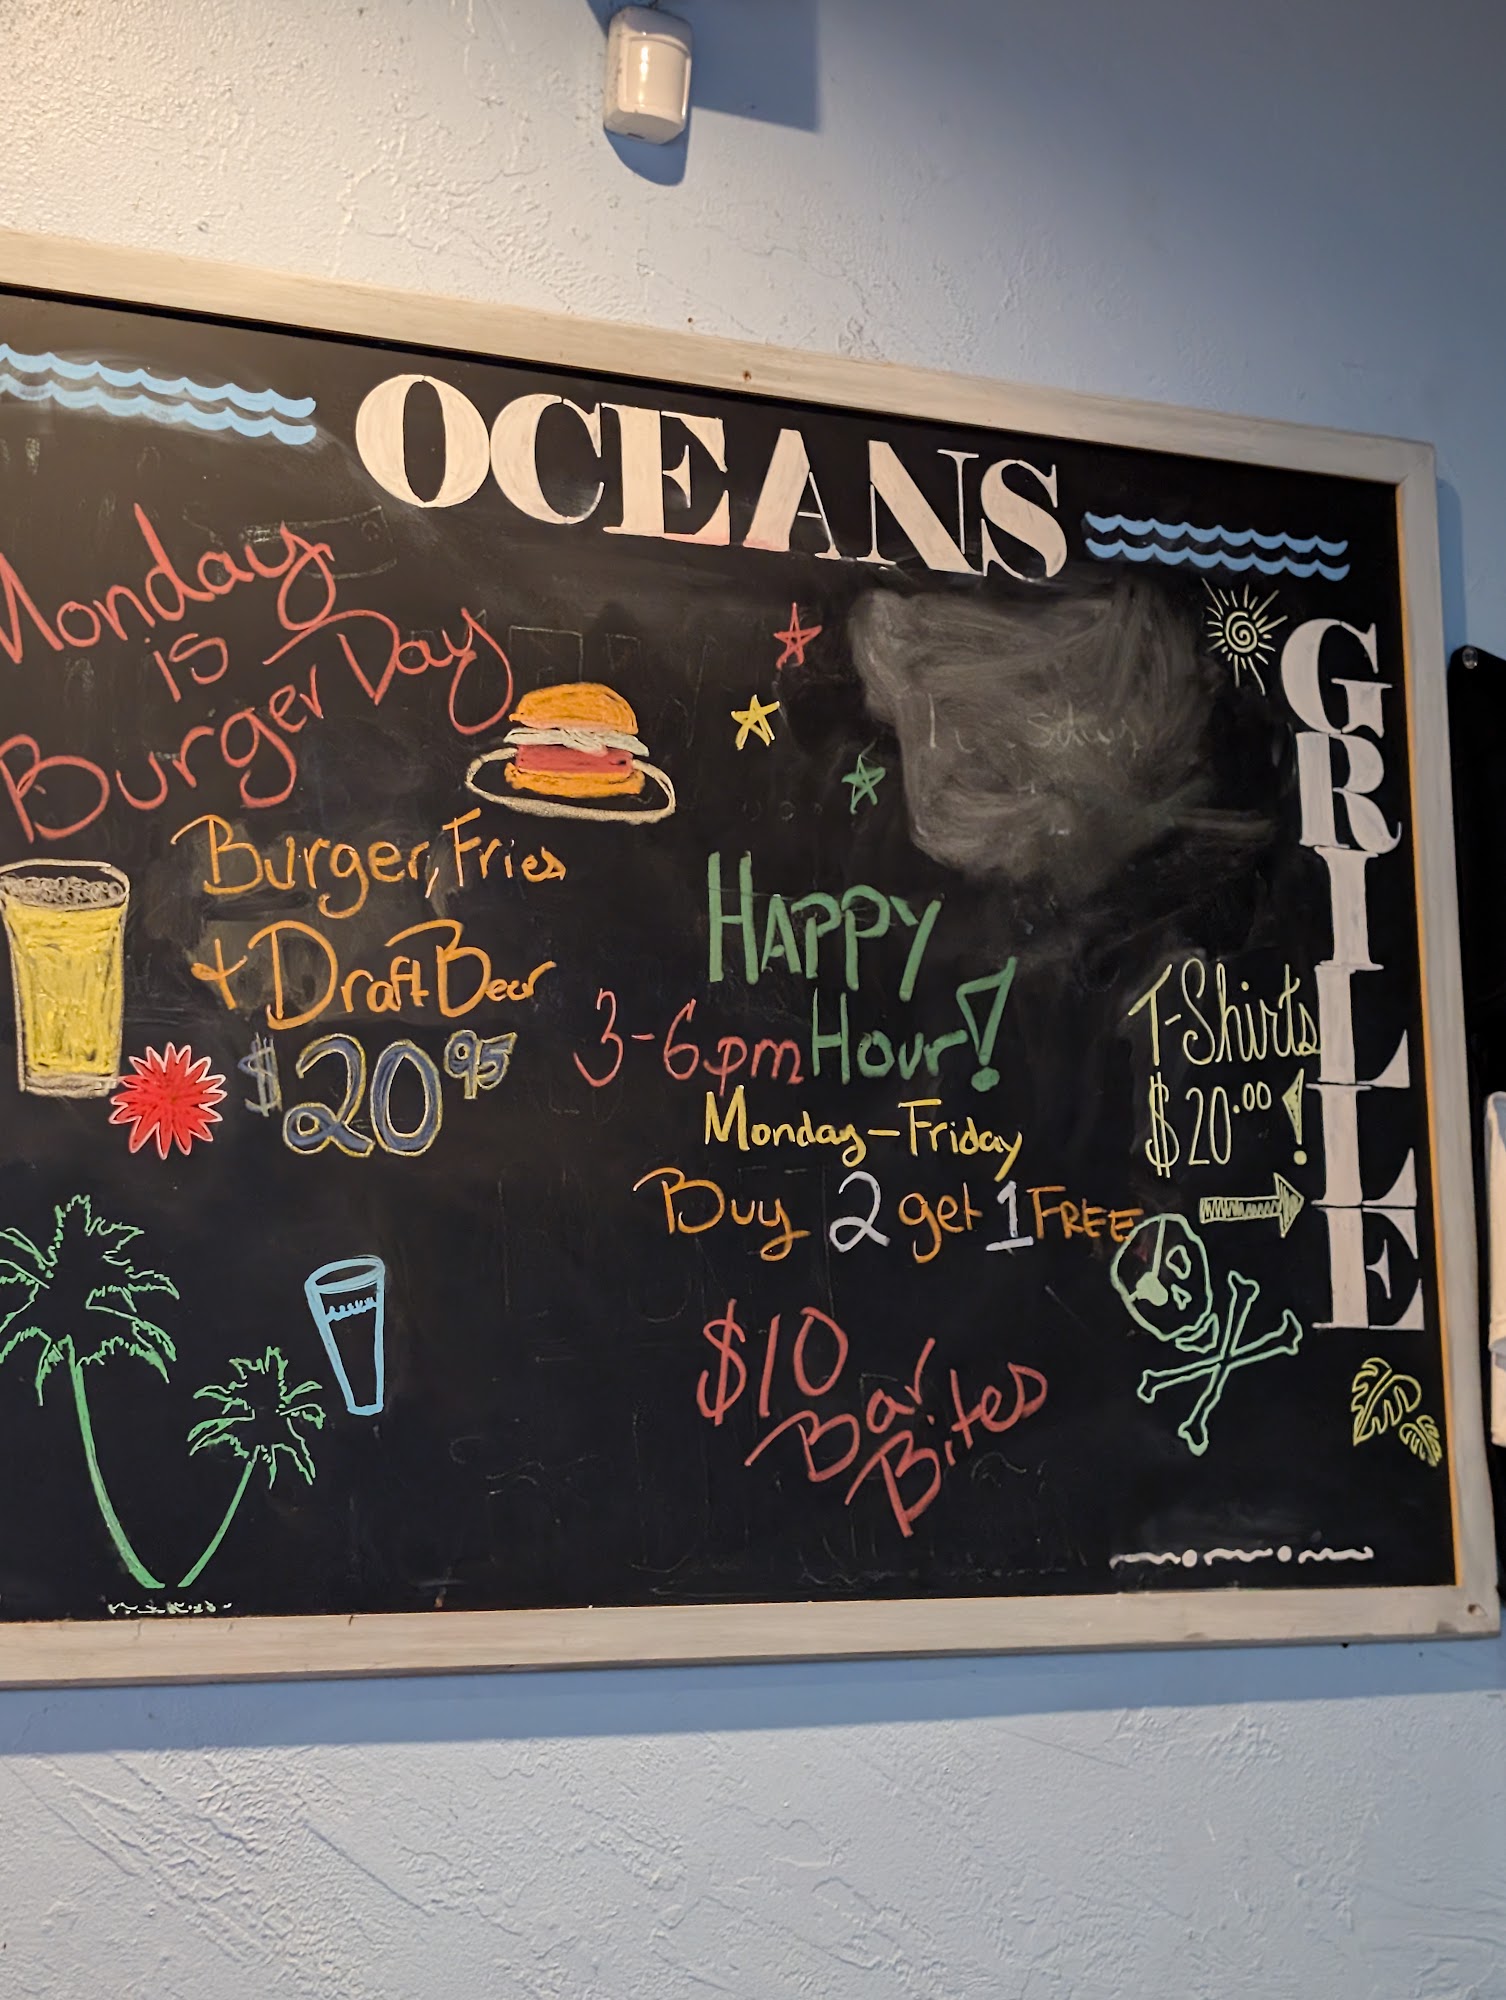 OCEANS
GRILLE
Monday
is
Burger Day
Burger, Fries
+ Draft Beer
$20 95
HAPPY
3-6pm Hour!
Monday-Friday
Buy 2 get 1 FREE
$10
Bar
Bites
T-Shirts
$20.00!